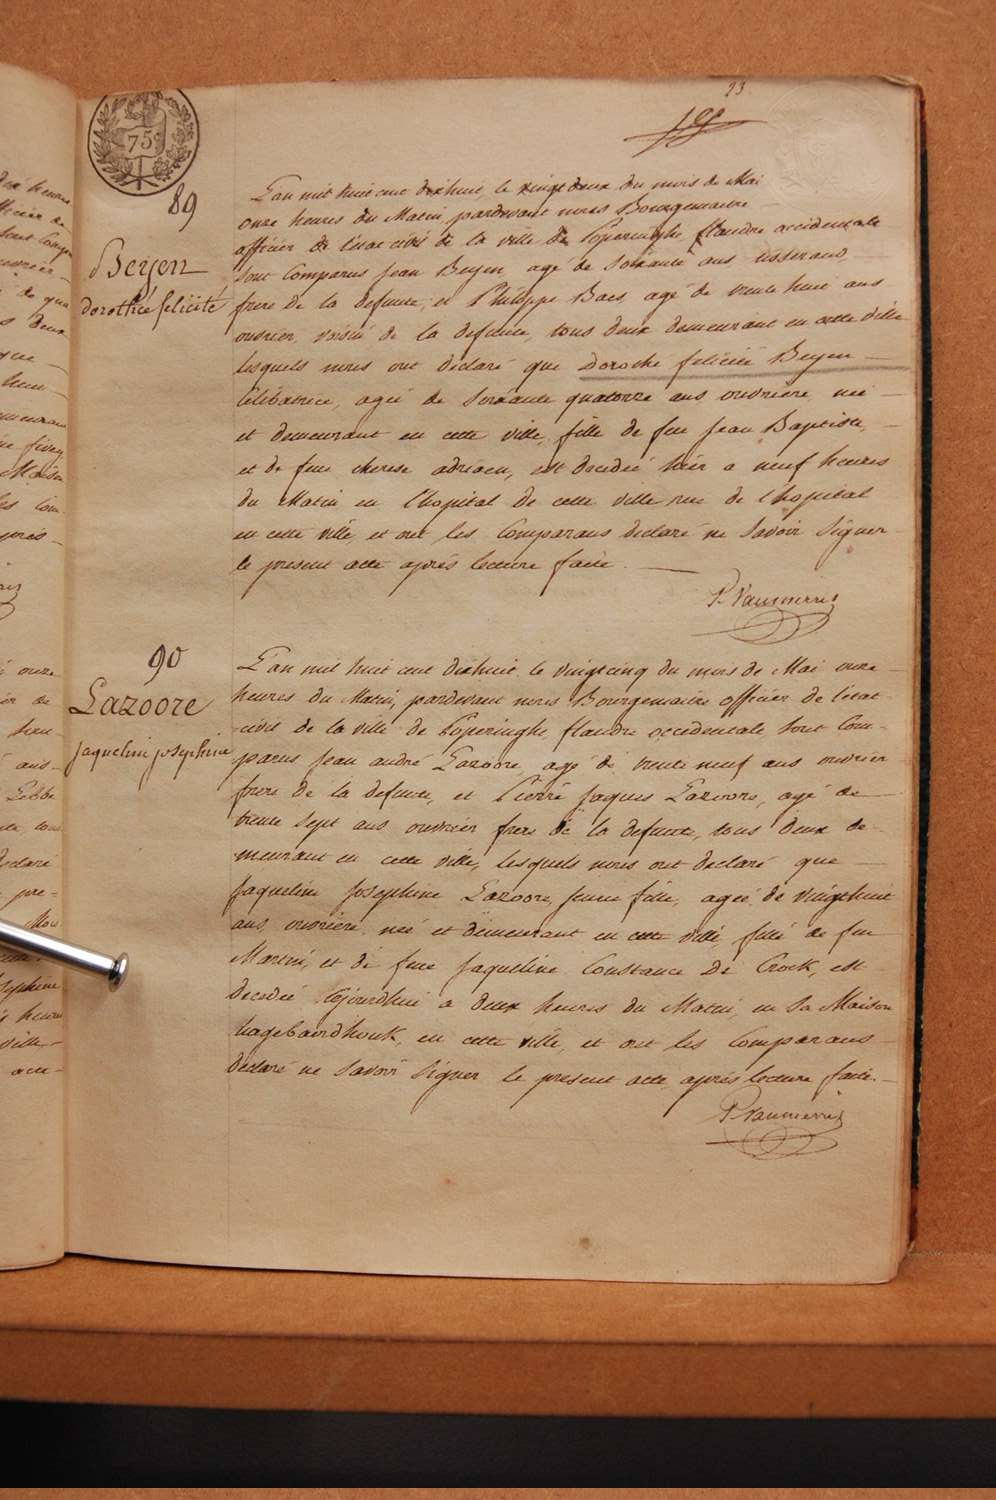 23
75c
89
Beyen
dorothée felicité
L'an mil huit cent dixhuit, le vingtdeux du mois de Mai
onze heures du Matin, pardevant nous Bourgemaitre
officier de l'etat civil de la ville de Poperinghe flandre occidentale
sont Comparus Jean Beyen, agé de soixante ans tisserand,
frere de la defunte, et Philippe Baes, agé de trente huit ans
ouvrier, voisin de la defunte, tous deux demeurant en cette ville
lesquels nous ont déclaré que Dorothé felicité Beyen
Célibatrice, agée de soixante quatorze ans ouvriere, née
et demeurant en cette ville, fille de feu Jean Baptiste,
et de feue therese adriaen, est decedée hier a neuf heures
du Matin en l'hopital de cette ville rue de l'hopital
en cette ville et ont les Comparans declaré ne savoir Signer
le present acte après lecture faite.
P. Vanmerris
90
Lazoore
Jaqueline josephine
L'an mil huit cent dixhuit le vingtcinq du mois de Mai onze
heures du Matin, pardevant nous Bourgemaitre officier de l'etat
civil de la ville de Poperinghe flandre occidentale, sont Com-
parus Jean andré Lazoore agé de trente neuf ans ouvrier
frere de la defunte, et Pierre Jaques Lazoore, agé de
trente sept ans ouvrier frere de la defunte, tous deux de-
meurant en cette ville, lesquels nous ont declaré que
Jaqueline Josephine Lazoore, jeune fille, agée de vingthuit
ans, ouvriere née et demeurant en cette ville fille de feu
Martin, et de feue Jaqueline Constance De Crock, est
decedée aujourdhui a deux heures du Matin, en sa Maison
hagebaerdhouk, en cette ville, et ont les Comparans
déclaré ne savoir Signer le present acte après lecture faite.
P. Vanmerris